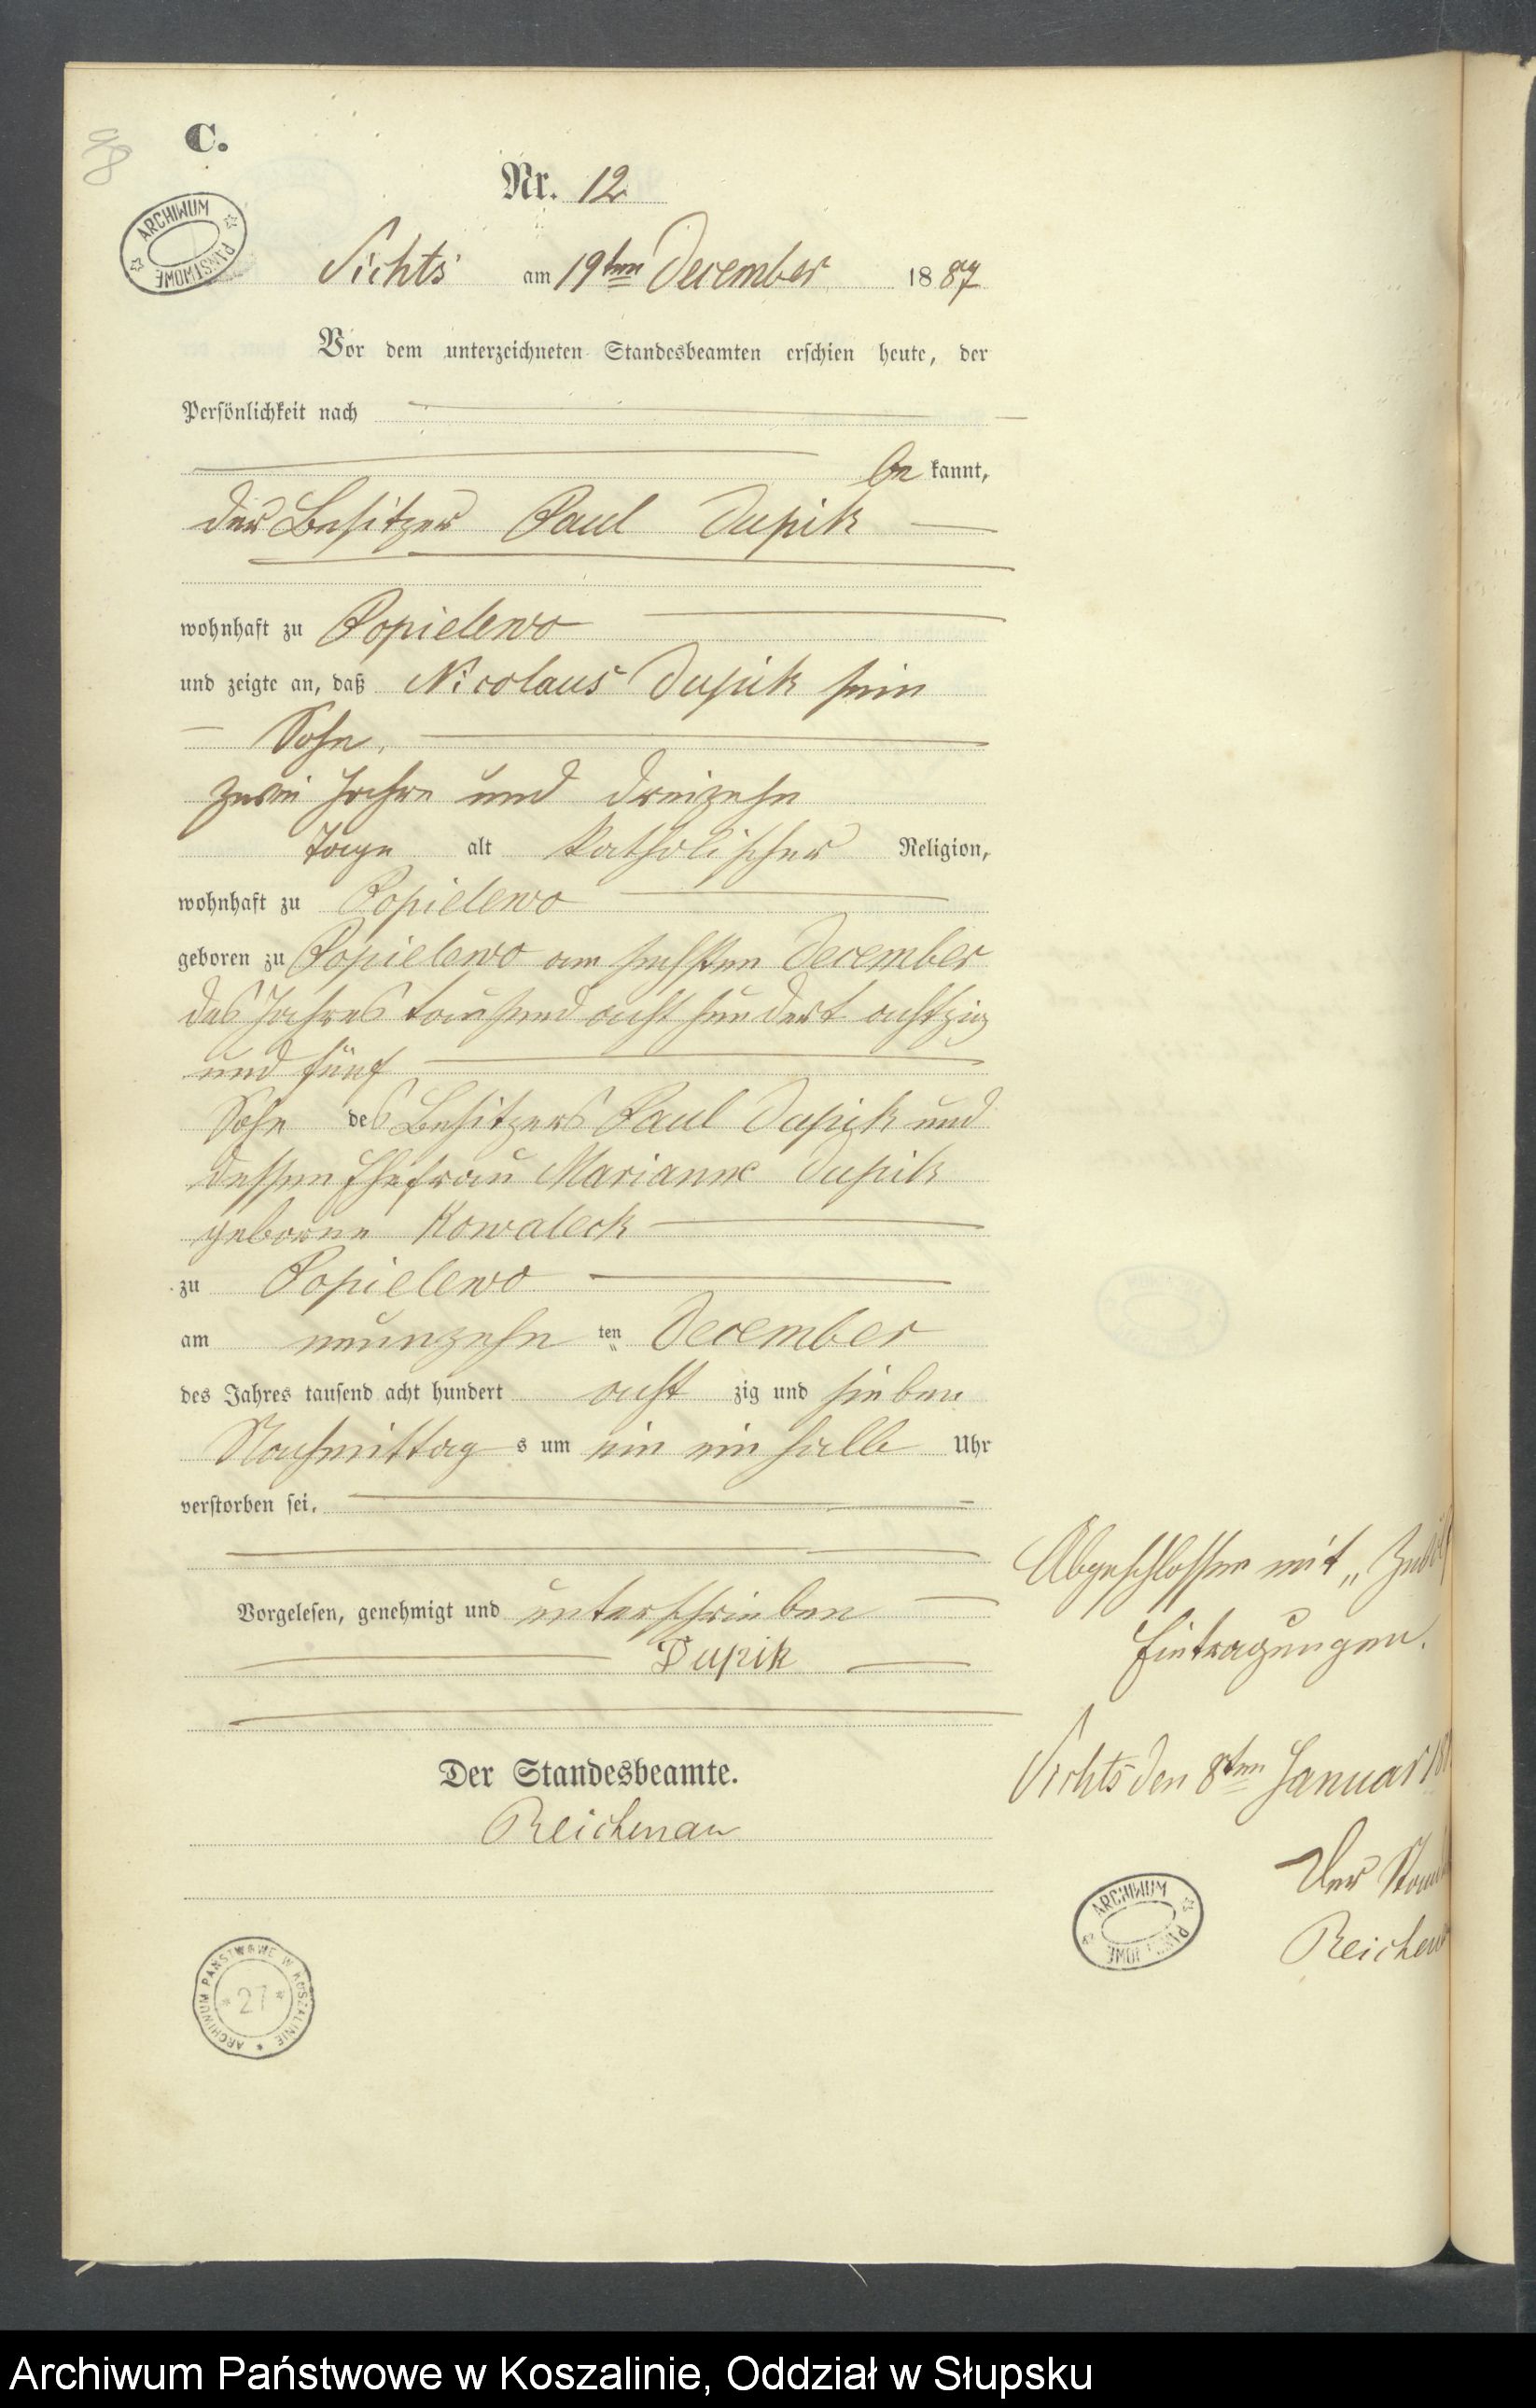 98
C.
Nr. 12
ARCHIWUM PAŃSTWOWE
Vichts am 19ten December 1887
Vor dem unterzeichneten Standesbeamten erschien heute, der
Persönlichkeit nach
be kannt,
der Besitzer Paul Dupik
wohnhaft zu Popielewo
und zeigte an, daß Nicolaus Dupik sein
Sohn,
zwei Jahre und dreizehn
Tage alt katholischer Religion,
wohnhaft zu Popielewo
geboren zu Popielewo am sechsten December
des Jahres tausend acht hundert achtzig
und fünf
Sohn des Besitzers Paul Dupik und
dessen Ehefrau Marianne Dupik
geborne Kowaleck
zu Popielewo
am neunzehn ten December
des Jahres tausend acht hundert acht zig und sieben
Nachmittag s um ein ein halb Uhr
verstorben sei.
Vorgelesen, genehmigt und unterschrieben
Dupik
Der Standesbeamte.
Reichenau
Abgeschlossen mit „
Eintragungen.
Vichts den 8ten Januar 18
Der
ARCHIWUM PAŃSTWOWE
ARCHIWUM PAŃSTWOWE W KOSZALINIE
* 27 *
Archiwum Państwowe w Koszalinie, Oddział w Słupsku